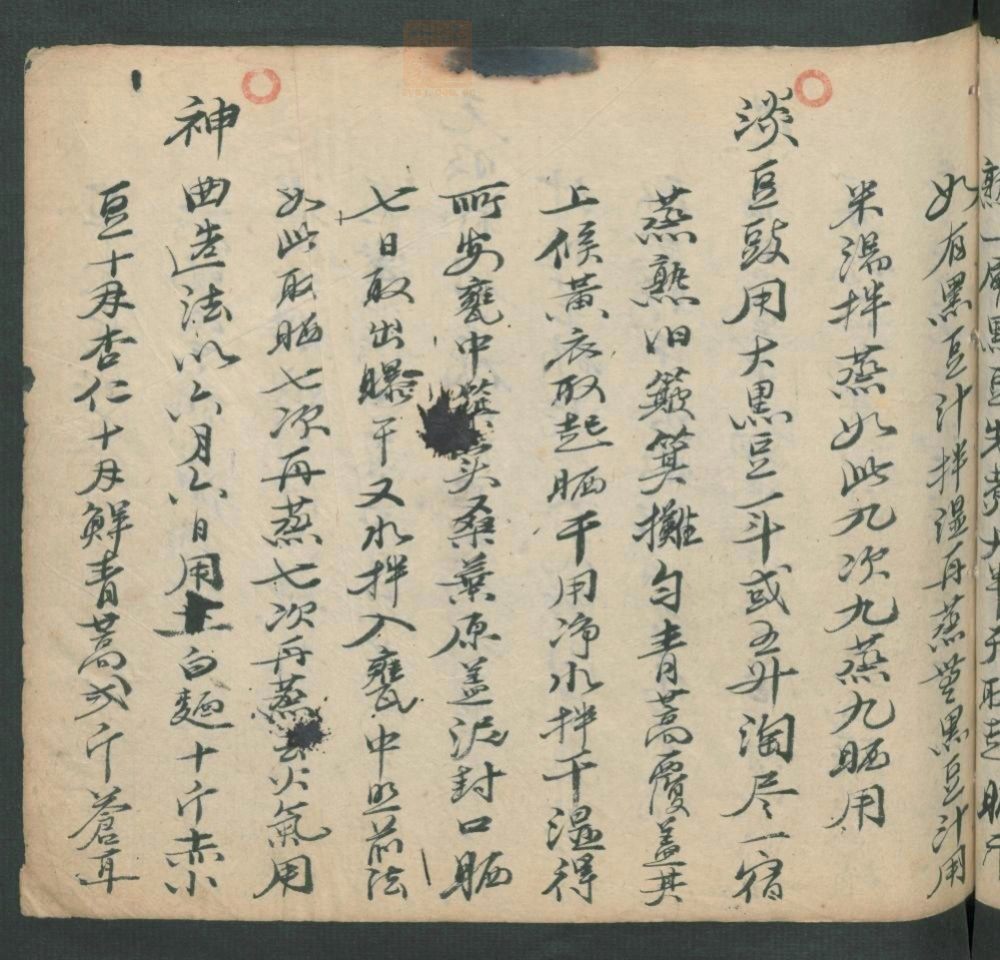 熟一層黑豆
如有黑豆汁拌湿再蒸無黑豆汁用
米湯拌蒸如此九次九蒸九晒用
淡豆豉用大黑豆一斗或五升淘尽一宿
蒸熟旧簸箕攤匀青蒿覆盖其
上候黃衣取起晒干用净水拌干湿得
所安甕中築实桑葉原盖泥封口晒
七日取出曝干又水拌入甕中照前法
如此取晒七次再蒸七次再蒸去火氣用
神曲造法以六月六日用白麵十斤赤小
豆十两杏仁十两鮮青蒿弍斤蒼耳